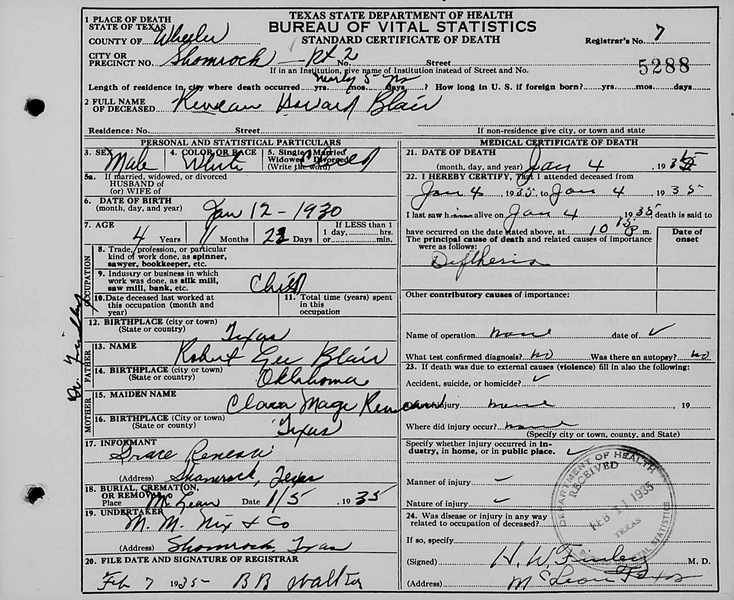 TEXAS STATE DEPARTMENT OF HEALTH
BUREAU OF VITAL STATISTICS
STANDARD CERTIFICATE OF DEATH
1 PLACE OF DEATH
STATE OF TEXAS
COUNTY OF Wheeler
Registrar's No. 7
CITY OR
PRECINCT NO. Shomrock - Rt 2 No. Street
If in an Institution, give name of Institution instead of Street and No.
5288
Length of residence in city where death occurred yrs. mos. days. ? How long in U. S. if foreign born? yrs. mos. days
2 FULL NAME
OF DECEASED Howard Blair
Residence: No. Street
If non-residence give city, or town and state
PERSONAL AND STATISTICAL PARTICULARS
3. SEX Male
4. COLOR OR RACE White
5. Single Married
Widowed Divorced
(Write the word)
5a. If married, widowed, or divorced
HUSBAND of
(or) WIFE of
6. DATE OF BIRTH
(month, day, and year) Jan 12 - 1930
7. AGE
4 Years 11 Months 23 Days
If LESS than 1
1 day, hrs.
or min.
OCCUPATION
8. Trade, profession, or particular
kind of work done, as spinner,
sawyer, bookkeeper, etc.
9. Industry or business in which
work was done, as silk mill,
saw mill, bank, etc. Child
10. Date deceased last worked at
this occupation (month and
year)
11. Total time (years) spent
in this
occupation
12. BIRTHPLACE (city or town)
(State or country) Texas
FATHER
13. NAME Robert Lee Blair
14. BIRTHPLACE (city or town)
(State or country) Oklahoma
MOTHER
15. MAIDEN NAME Clara Mage
16. BIRTHPLACE (city or town)
(State or country) Texas
17. INFORMANT Grace Reneau
(Address) Shamrock, Texas
18. BURIAL, CREMATION,
OR REMOVAL
Place McLean Date 1/5, 1935
19. UNDERTAKER
M. M. Nix & Co
(Address) Shomrock Texas
20. FILE DATE AND SIGNATURE OF REGISTRAR
Feb 7 1935 - BB Walker
MEDICAL CERTIFICATE OF DEATH
21. DATE OF DEATH
(month, day, and year) Jan 4 1935
22. I HEREBY CERTIFY, That I attended deceased from
Jan 4 1935 to Jan 4 1935
I last saw him alive on Jan 4 1935 death is said to
have occurred on the date stated above, at 10 15 P m.
The principal cause of death and related causes of importance
were as follows:
Date of
onset
Diftheria
Other contributory causes of importance:
Name of operation none date of ✓
What test confirmed diagnosis? no Was there an autopsy? no
23. If death was due to external causes (violence) fill in also the following:
Accident, suicide, or homicide? ✓
injury none , 19
Where did injury occur? none
(Specify city or town, county, and State)
Specify whether injury occurred in industry, in home, or in public place. ✓
Manner of injury -
Nature of injury -
24. Was disease or injury in any way
related to occupation of deceased?
If so, specify
(Signed) H. W. Finley M. D.
(Address) McLean Texas
DEPARTMENT OF HEALTH
RECEIVED
FEB 1935
TEXAS
VITAL STATISTICS